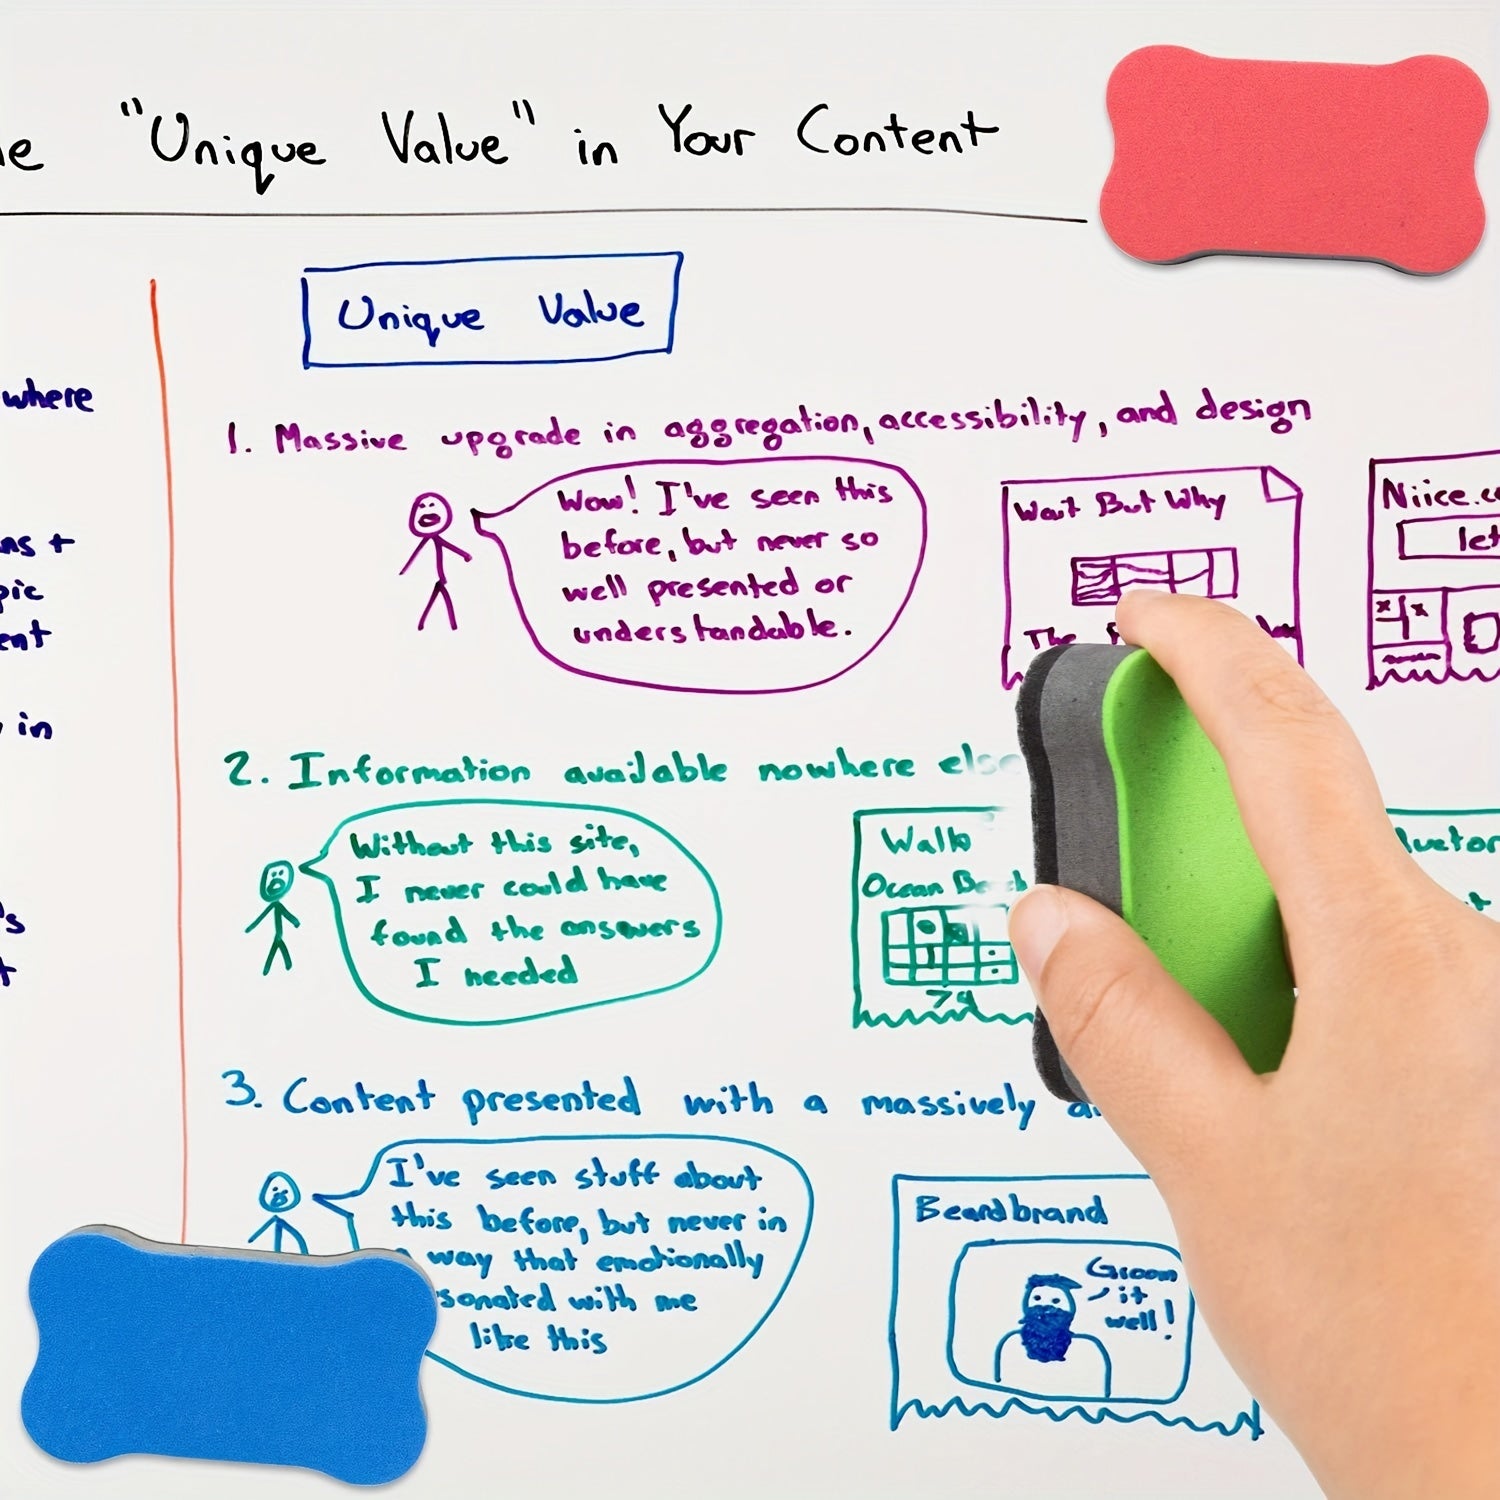 "Unique Value" in Your Content
Unique Value
where
1. Massive upgrade in aggregation, accessibility, and design
Wow! I've seen this
before, but never so
well presented or
understandable.
Wait But Why
The
Niice.co
let
+
in
2. Information available nowhere else
Without this site,
I never could have
found the answers
I needed
Walk
Ocean Beach
74
3. Content presented with a massively
I've seen stuff about
this before, but never in
way that emotionally
sonated with me
like this
Beardbrand
Groom
it
well!